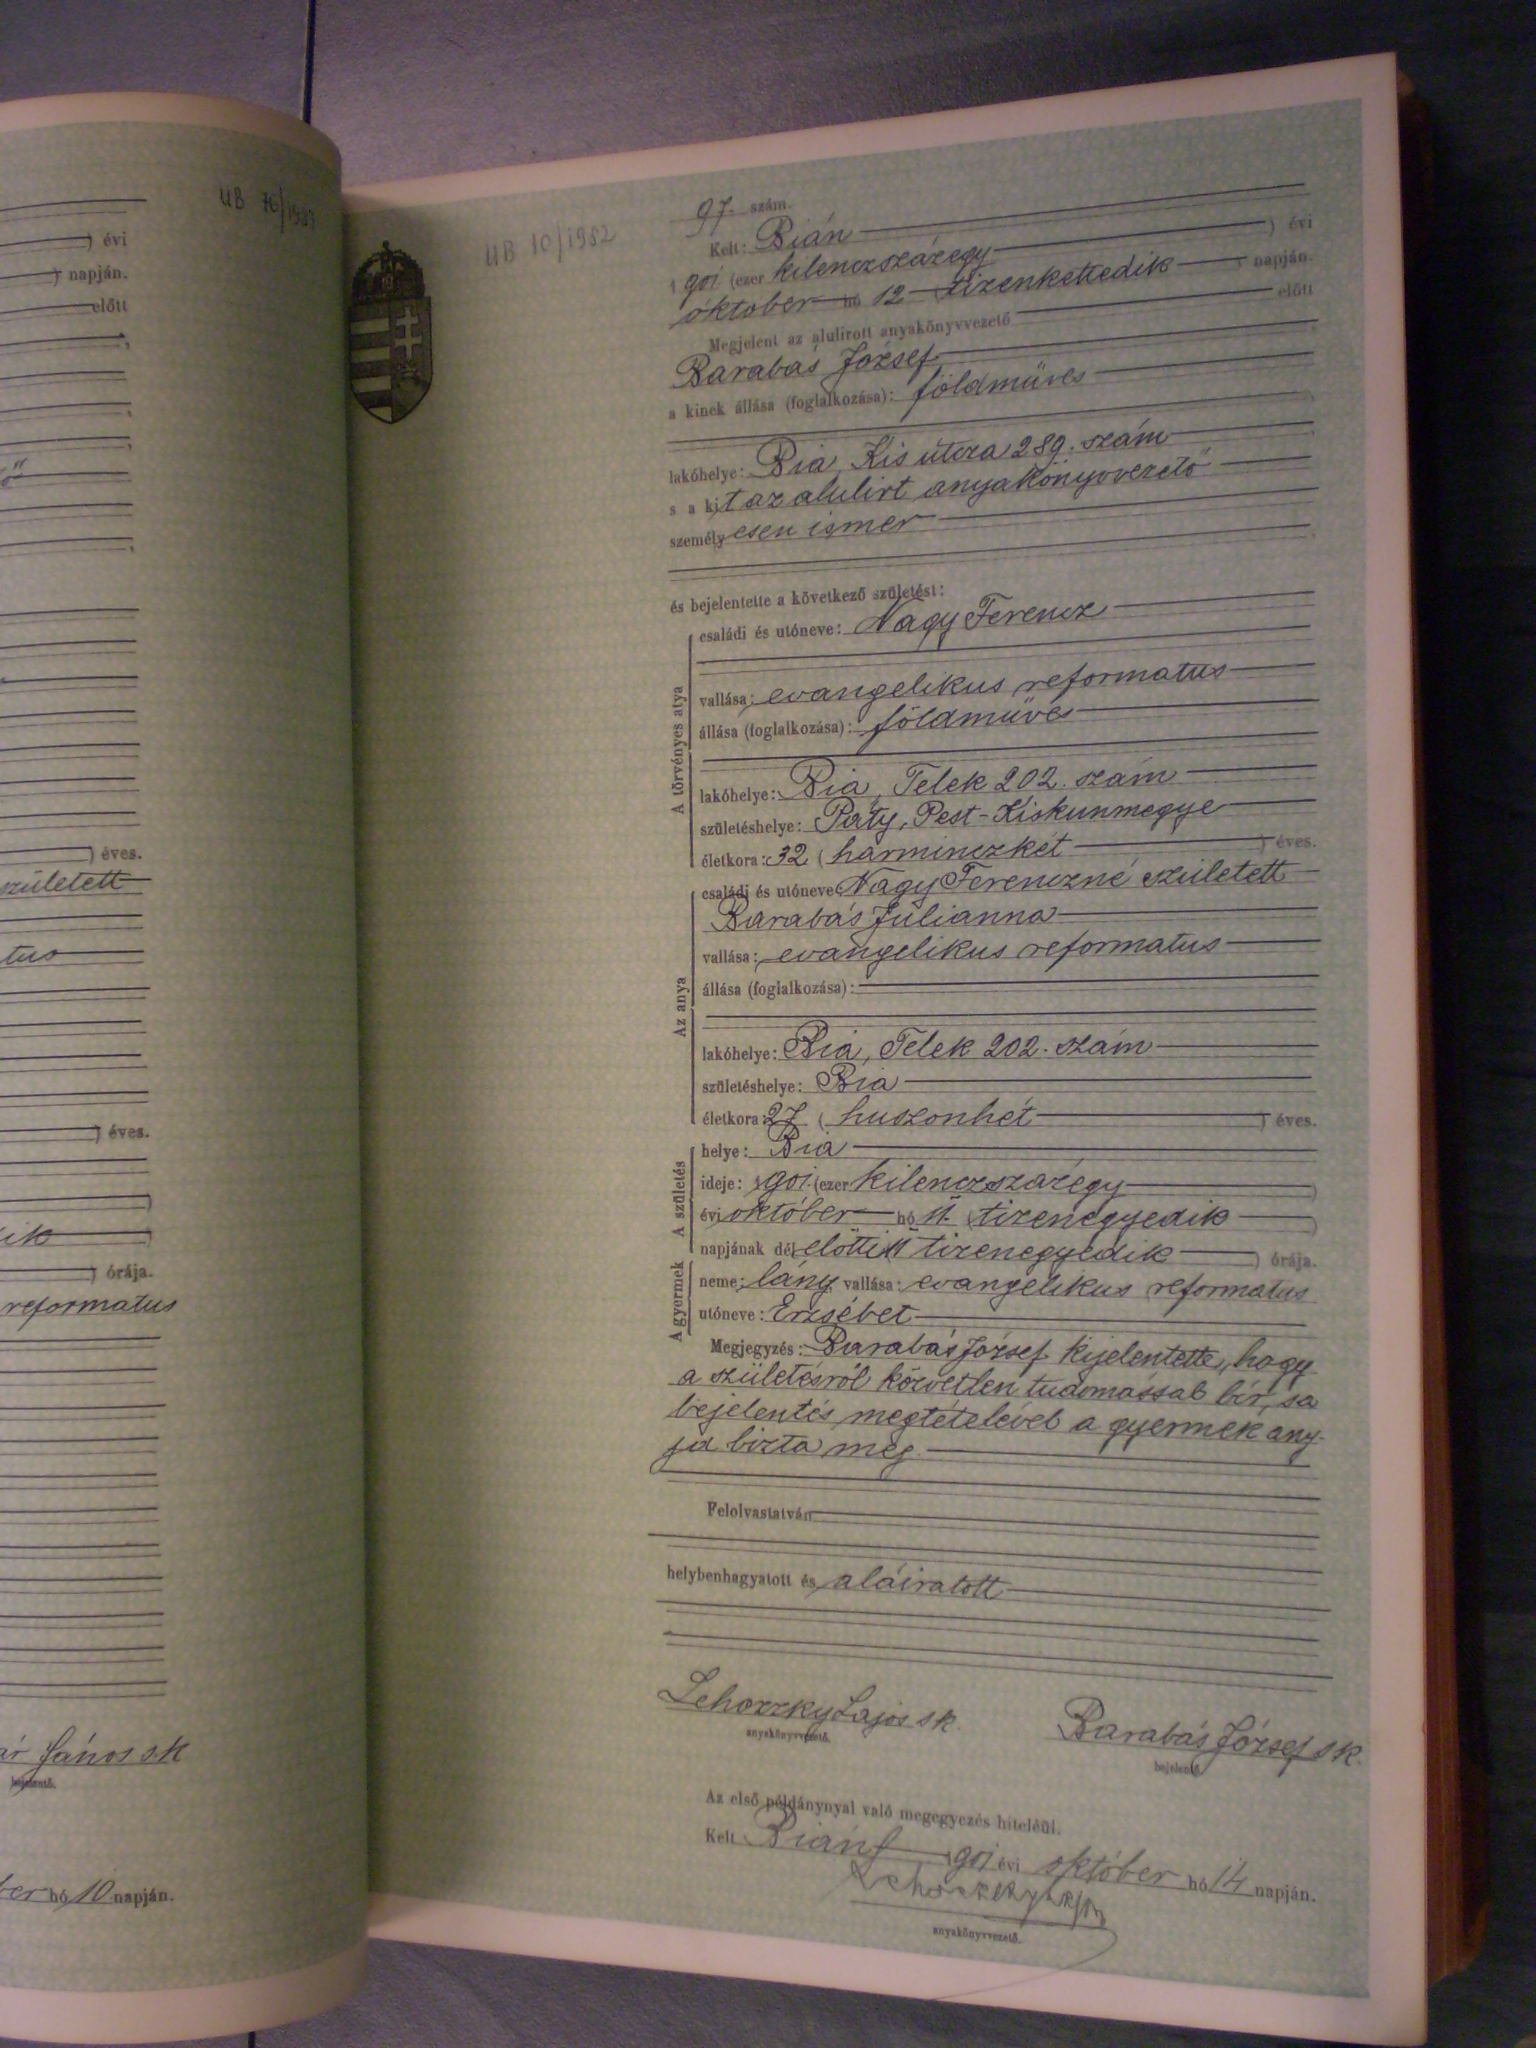 UB 76/1983
) évi
) napján.
előtt
ő
) éves.
született
tus
) éves.
dik
) órája.
reformatus
János sk
bejelentő.
ber hó 10 napján.
UB 10/1982
97. szám.
Kelt: Bián ) évi
1901 (ezer kilenczszázegy
október hó 12 tizenkettedik ) napján.
Megjelent az alulirott anyakönyvvezető előtt
Barabás József
a kinek állása (foglalkozása): földműves
lakóhelye: Bia, Kis utcza 289. szám
s a kit az alulirt anyakönyvvezető
személyesen ismer
és bejelentette a következő születést:
A törvényes atya
családi és utóneve: Nagy Ferencz
vallása: evangelikus reformatus
állása (foglalkozása): földműves
lakóhelye: Bia, Telek 202. szám
születéshelye: Páty, Pest-Kiskunmegye
életkora: 32 (harminczkét ) éves.
Az anya
családi és utóneve: Nagy Ferenczné született
Barabás Julianna
vallása: evangelikus reformatus
állása (foglalkozása):
lakóhelye: Bia, Telek 202. szám
születéshelye: Bia
életkora: 27 (huszonhét ) éves.
A születés
helye: Bia
ideje: 1901 (ezer kilenczszázegy )
évi október hó 11. (tizenegyedik )
napjának dél előtti 11 tizenegyedik ) órája.
A gyermek
neme: lány vallása: evangelikus reformatus
utóneve: Erzsébet
Megjegyzés: Barabás József kijelentette, hogy
a születésről közvetlen tudomással bír, s a
bejelentés megtételével a gyermek any-
ja bizta meg.
Felolvastatván
helybenhagyatott és aláiratott
Lehoczky Lajos sk. Barabás József sk.
anyakönyvvezető. bejelentő.
Az első példánynyal való megegyezés hiteléül.
Kelt Bián 1901 évi október hó 14 napján.
Lehoczky Lajos
anyakönyvvezető.